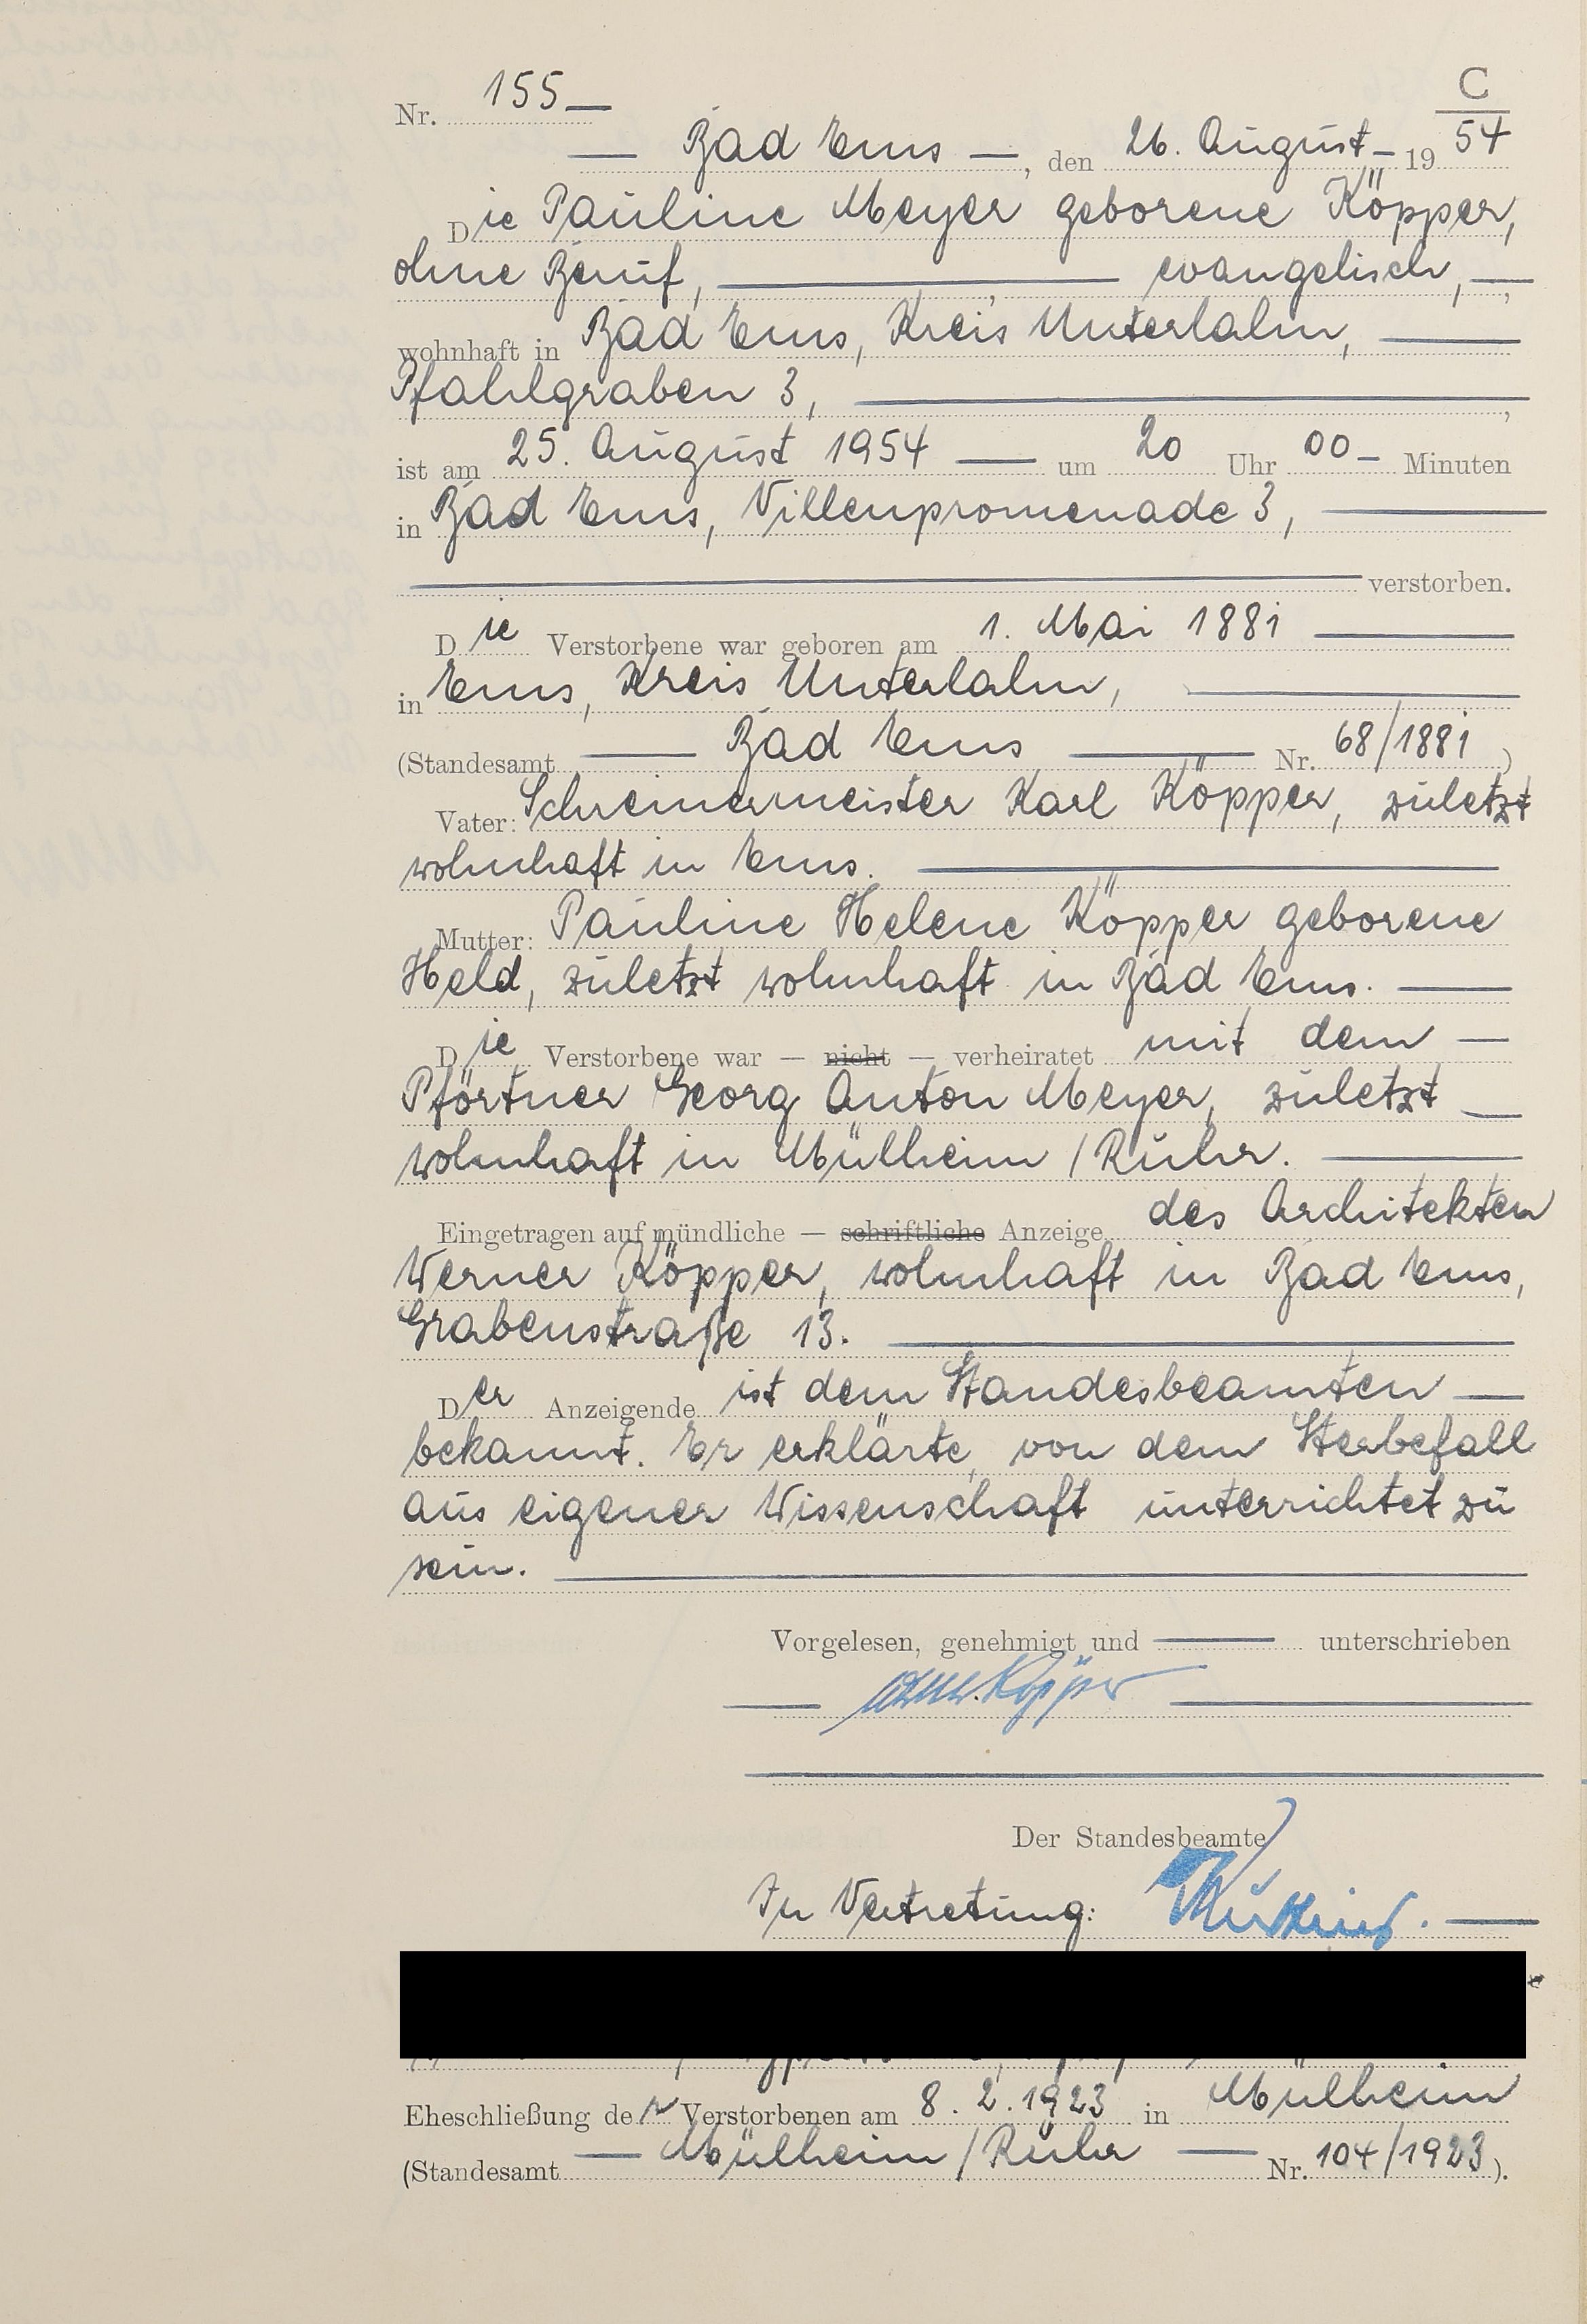 C
Nr. 155
Bad Ems, den 26. August 1954
Die Pauline Meyer geborene Köpper,
ohne Beruf, evangelisch,
wohnhaft in Bad Ems, Kreis Unterlahn,
Pfahlgraben 3,
ist am 25. August 1954 um 20 Uhr 00 Minuten
in Bad Ems, Villenpromenade 3,
verstorben.
Die Verstorbene war geboren am 1. Mai 1881
in Ems, Kreis Unterlahn,
(Standesamt Bad Ems Nr. 68/1881)
Vater: Schreinermeister Karl Köpper, zuletzt
wohnhaft in Ems.
Mutter: Pauline Helene Köpper geborene
Held, zuletzt wohnhaft in Bad Ems.
Die Verstorbene war — nicht — verheiratet mit dem
Pförtner Georg Anton Meyer, zuletzt
wohnhaft in Mülheim/Ruhr.
Eingetragen auf mündliche — schriftliche Anzeige des Architekten
Werner Köpper, wohnhaft in Bad Ems,
Grabenstraße 13.
Der Anzeigende ist dem Standesbeamten
bekannt. Er erklärte, von dem Sterbefall
aus eigener Wissenschaft unterrichtet zu
sein.
Vorgelesen, genehmigt und unterschrieben
Köpper
Der Standesbeamte
In Vertretung:
Eheschließung der Verstorbenen am 8. 2. 1923 in Mülheim
(Standesamt Mülheim/Ruhr Nr. 104/1923).